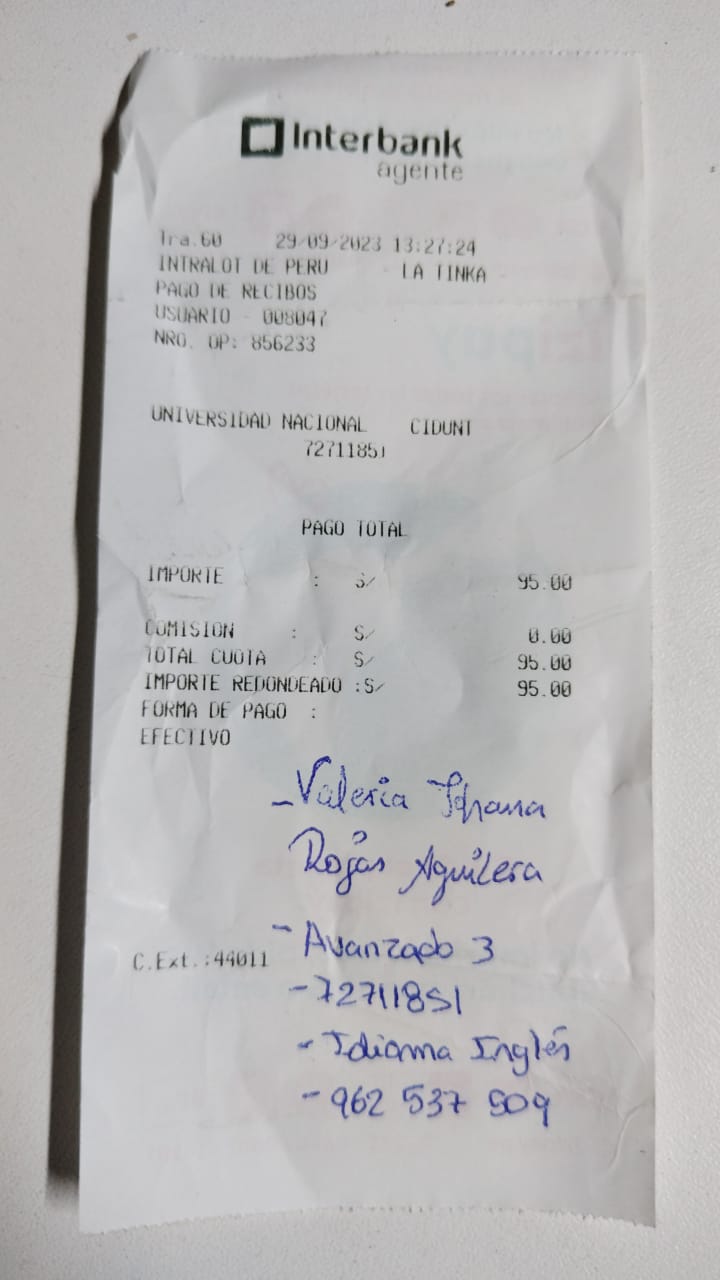 Interbank
agente
Tra.60 29/09/2023 13:27:24
INTRALOT DE PERU - LA TINKA -
PAGO DE RECIBOS
USUARIO - 008047
NRO. OP: 856233
UNIVERSIDAD NACIONAL CIDUNT
72711851
PAGO TOTAL
IMPORTE : S/ 95.00
COMISION : S/ 0.00
TOTAL CUOTA : S/ 95.00
IMPORTE REDONDEADO :S/ 95.00
FORMA DE PAGO :
EFECTIVO
- Valeria
Rojas Aguilera
- Avanzado 3
C.Ext.:44011
- 72711851
- Idioma Inglés
- 962 537 909